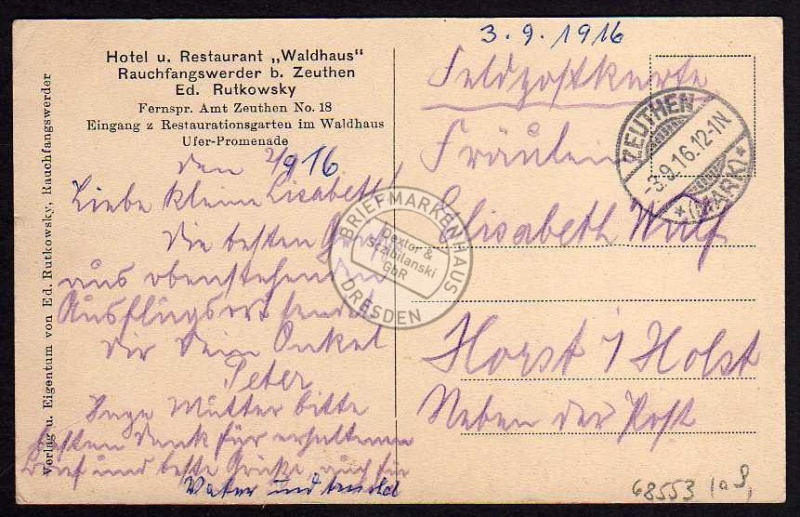 3.9.1916
Hotel u. Restaurant „Waldhaus"
Rauchfangswerder b. Zeuthen
Ed. Rutkowsky
Fernspr. Amt Zeuthen No. 18
Eingang z Restaurationsgarten im Waldhaus
Ufer-Promenade
den 2/9 16
Liebe kleine Lisabeth!
Die besten
aus obenstehendem
Ausflugsort sendet
Dir Dein Onkel
Peter
Mutter bitte
besten Dank für erhaltenen
Brief und beste Grüße auch für
Vater und
Verlag u. Eigentum von Ed. Rutkowsky, Rauchfangswerder
Feldpostkarte
Fräulein
Elisabeth Wulf
Horst i/Holst
Neben der Post
ZEUTHEN
3.9.16.12-1N
*(MARK)*
BRIEFMARKENHAUS
Dextor &
Szabilanski
GbR
DRESDEN
68553